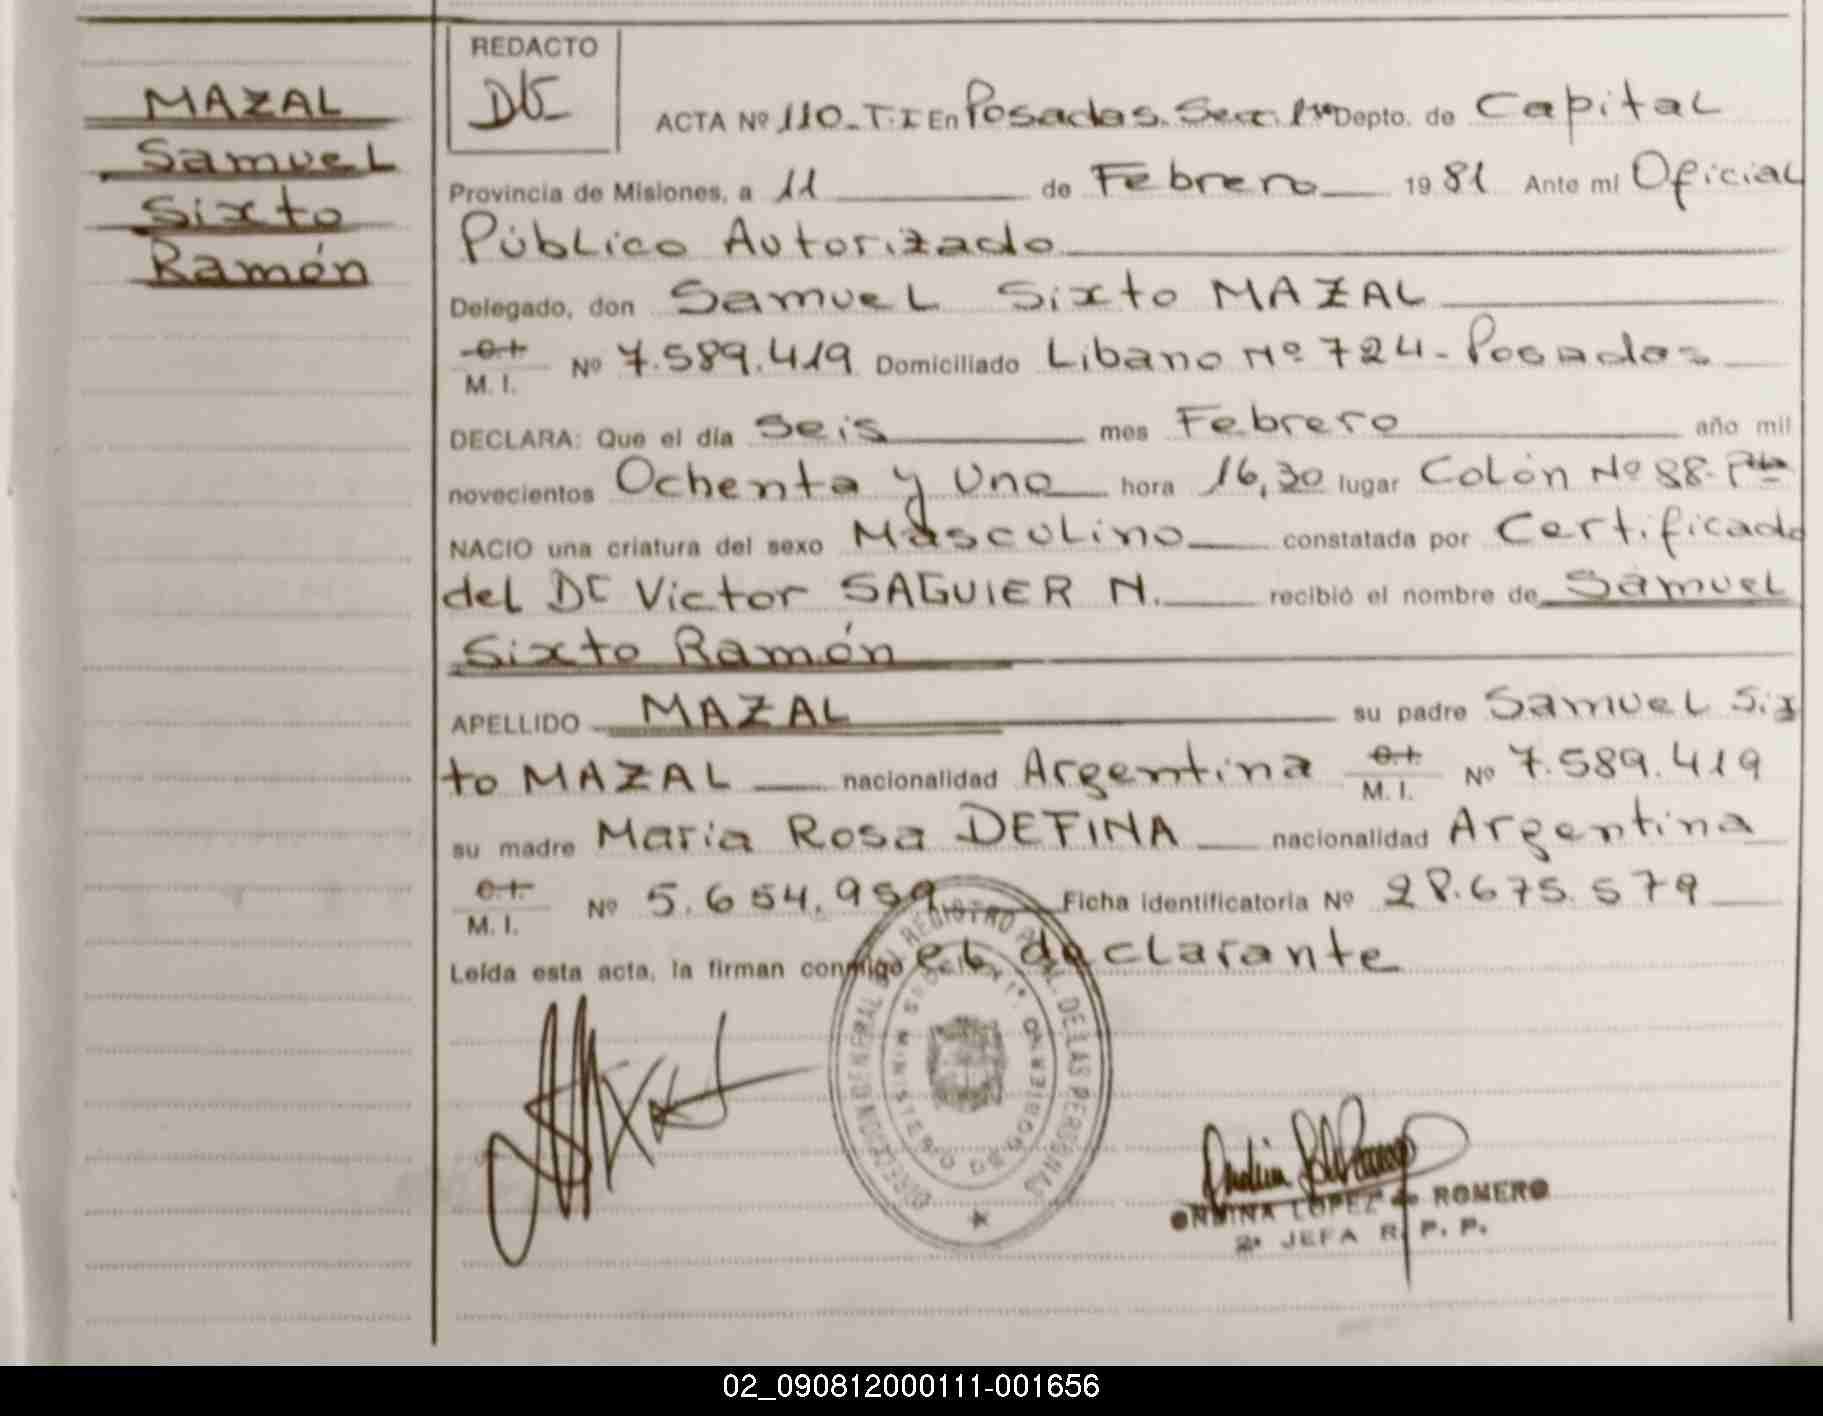 MAZAL
Samuel
Sixto
Ramón
REDACTO
ACTA Nº 110_T.I En Posadas. Secc. 1ra Depto. de Capital
Provincia de Misiones, a 11 de Febrero 1981 Ante mi Oficial
Público Autorizado
Delegado, don Samuel Sixto MAZAL
C.I.
M. I. Nº 7.589.419 Domiciliado Libano Nº 724 - Posadas
DECLARA: Que el día Seis mes Febrero año mil
novecientos Ochenta y Uno hora 16,30 lugar Colón Nº 88-
NACIO una criatura del sexo Masculino constatada por Certificado
del Dr Victor SAGUIER N. recibió el nombre de Samuel
Sixto Ramón
APELLIDO MAZAL su padre Samuel Six
to MAZAL nacionalidad Argentina C.I.
M. I. Nº 7.589.419
su madre Maria Rosa DEFINA nacionalidad Argentina
C.I.
M. I. Nº 5.654.959 Ficha identificatoria Nº 28.675.579
Leída esta acta, la firman conmigo el declarante
DIRECCION GENERAL DEL REGISTRO PCIAL. DE LAS PERSONAS
MINISTERIO DE GOBIERNO
ONDINA LOPEZ de ROMERO
2ª JEFA R. P. P.
02_090812000111-001656